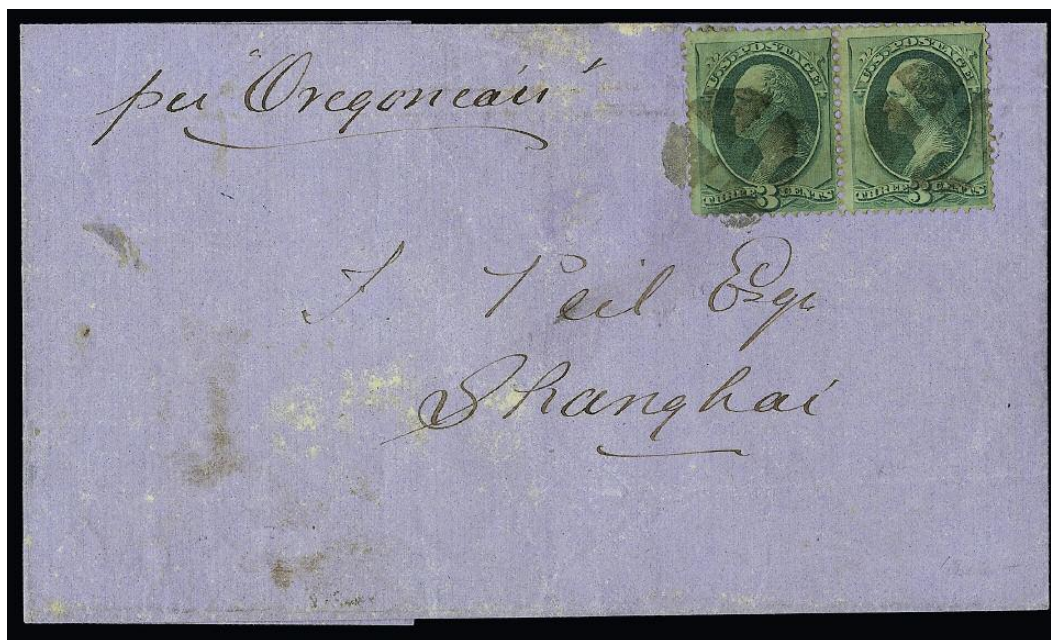 per "Oregonean"
U.S. POSTAGE
THREE 3 CENTS
U.S. POSTAGE
THREE 3 CENTS
J. Peil Esqr
Shanghai